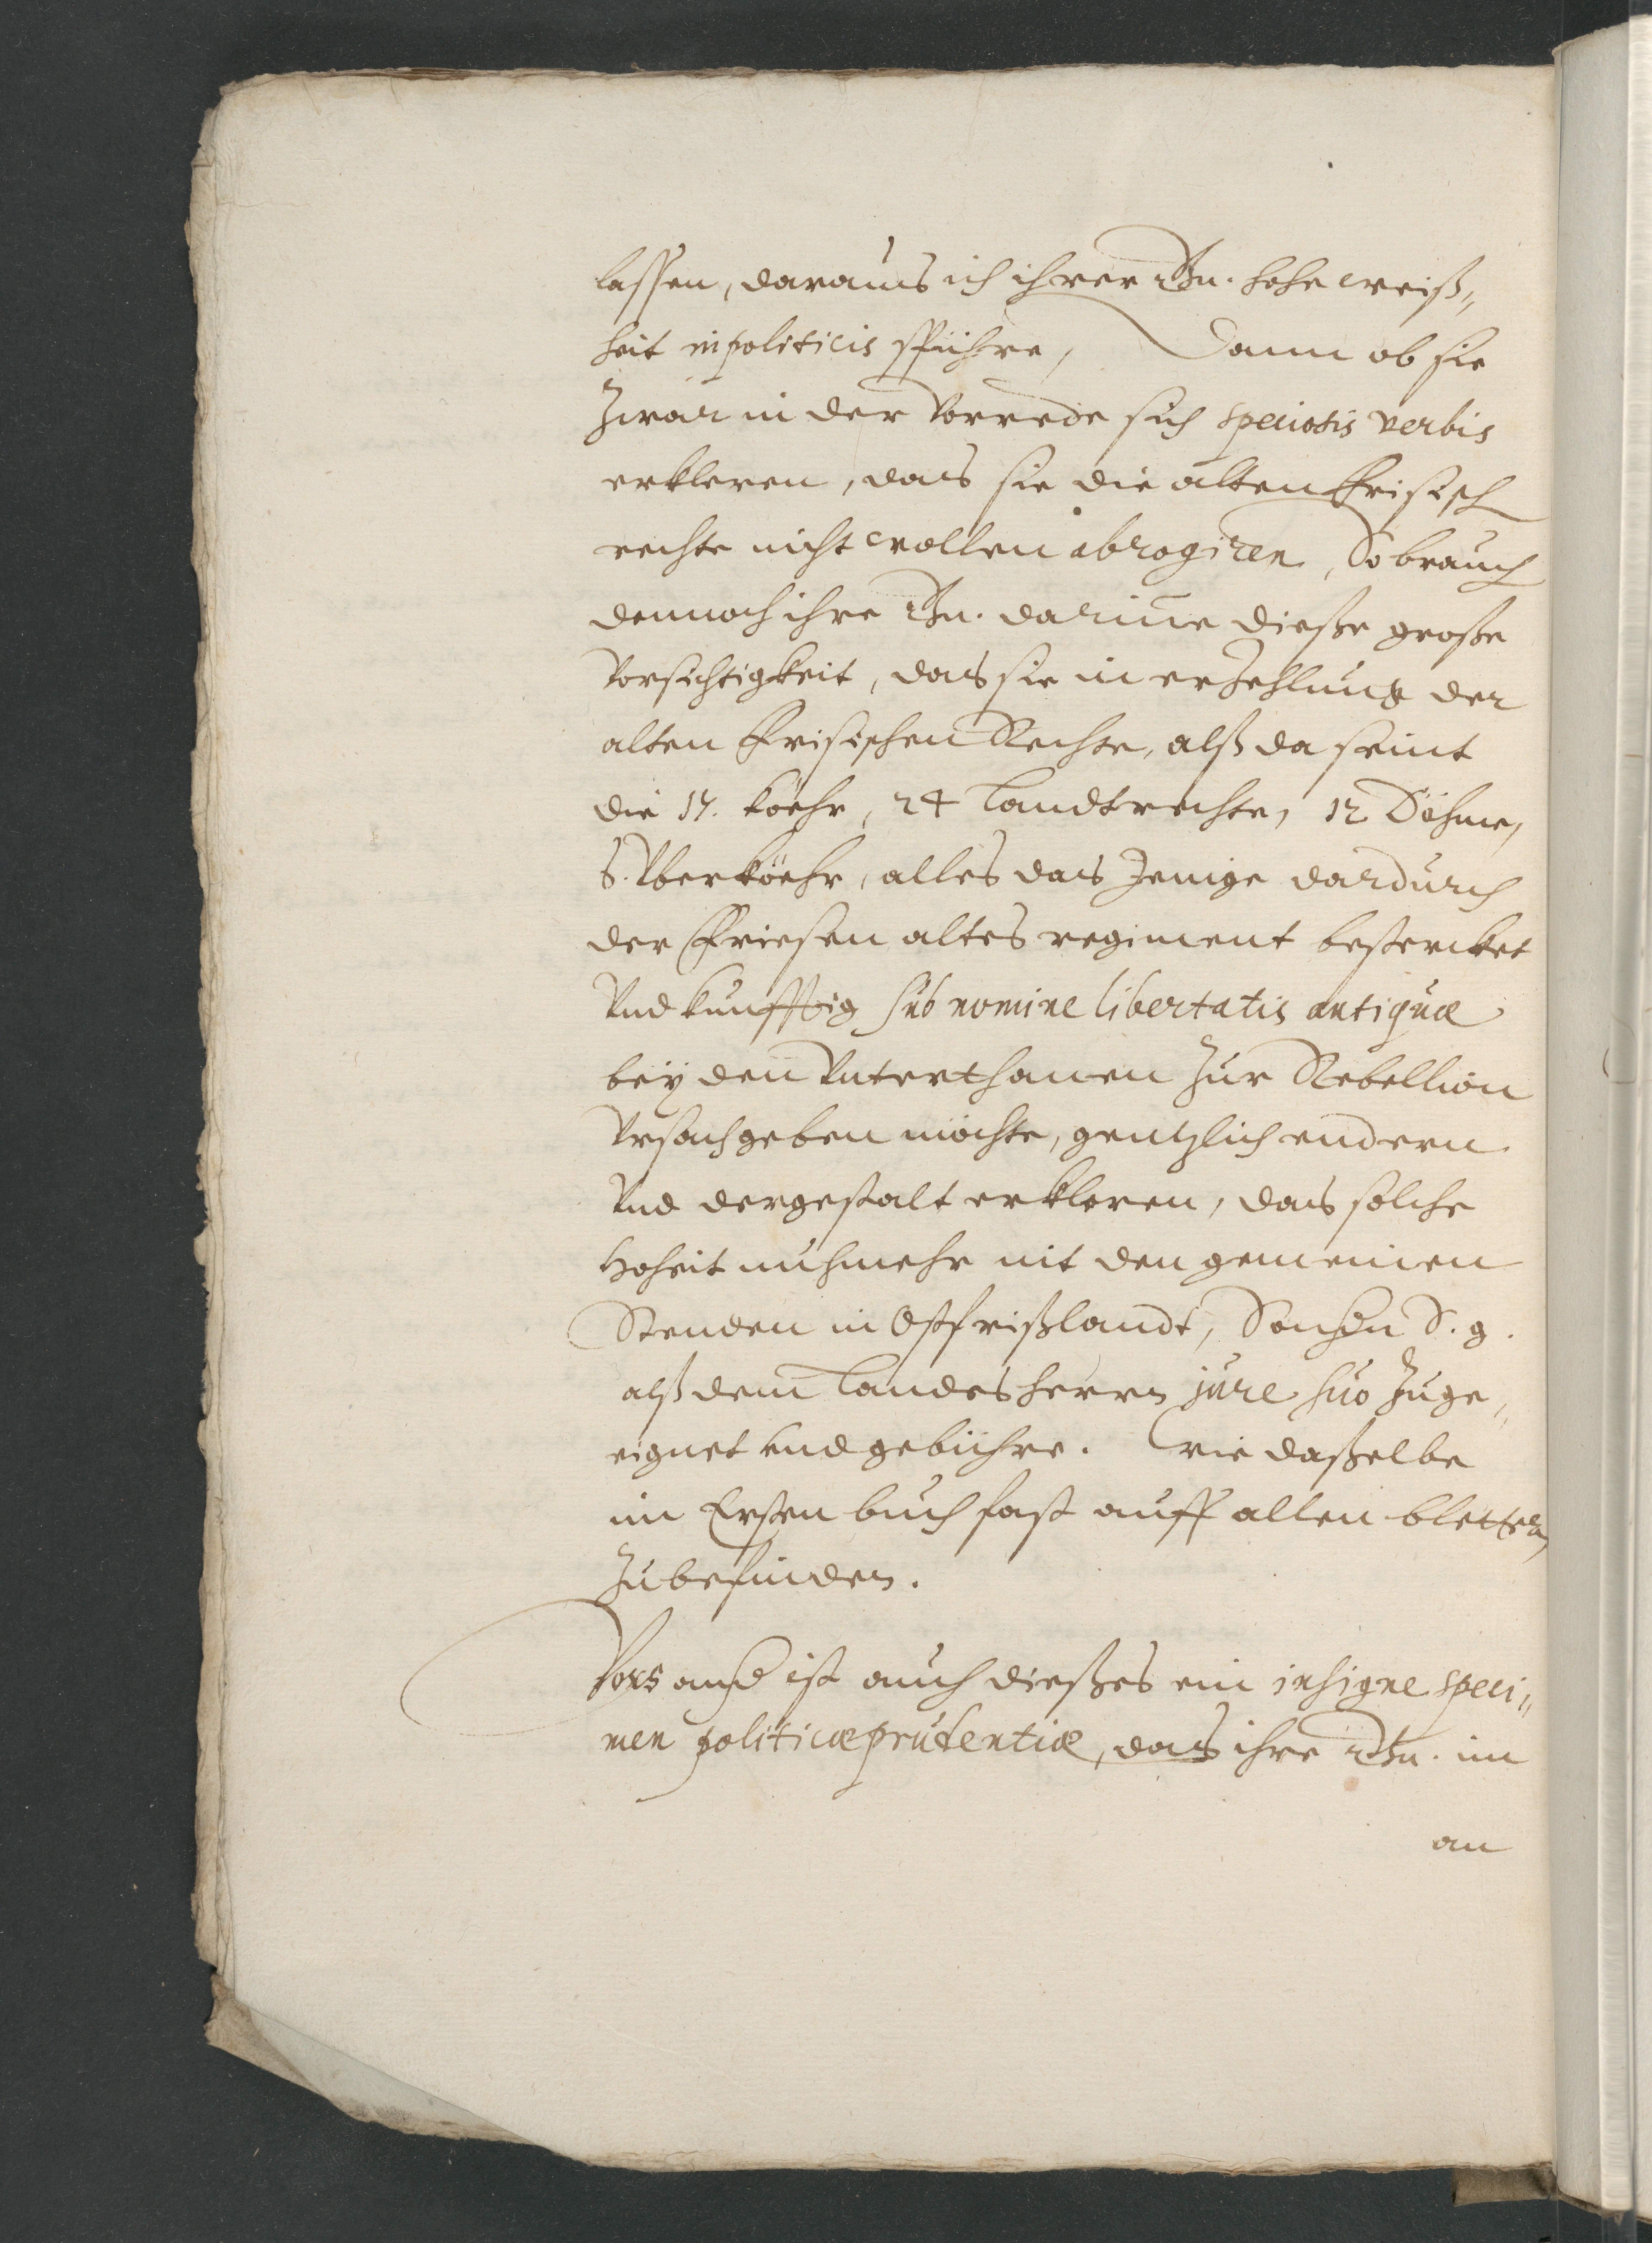 lassen, daraus ich ihrer Gn. hohe weiß„
heit in politicis spühre, Dann ob sie
Zwar in der Vorrede sich speciosis verbis
erkleren, das sie die alten Frisisch
rechte nicht wollen abrogiren, So brauch
dennoch ihre Gn. darinne dieße große
Vorsichtigkeit, das sie in erzehlung der
alten Frisischen Rechte, alß da seint
die 17. köehr, 24 Landtrechte, 12 Döhme,
S. Vberköehr, alles das Jenige dardurch
der Friesen altes regiment bestercket
Vnd kunfftig sub nomine libertatis antiquæ
bey den Vnterthanen Zur Rebellion
Vrsach geben möchte, gentzlich endern
Vnd dergestalt erkleren, das solche
Hoheit nuhmehr nit den gemeinen
Stenden in Ostfrißlandt, Sondern S. g.
alß dem Landesherrn jure suo Zuge„
eignet vnd gebühre. Wie daßelbe
im Ersten buch fast auff allen blettern
Zubefinden.
Vors ander ist auch dießes ein insigne speci„
men politicæ prudentiæ, das ihre Gn. im
an